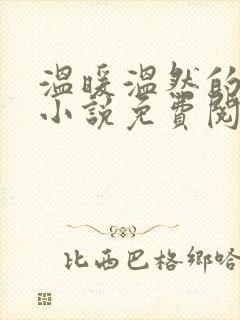 温暖温然的
小说免費閱
比西巴格鄉哈